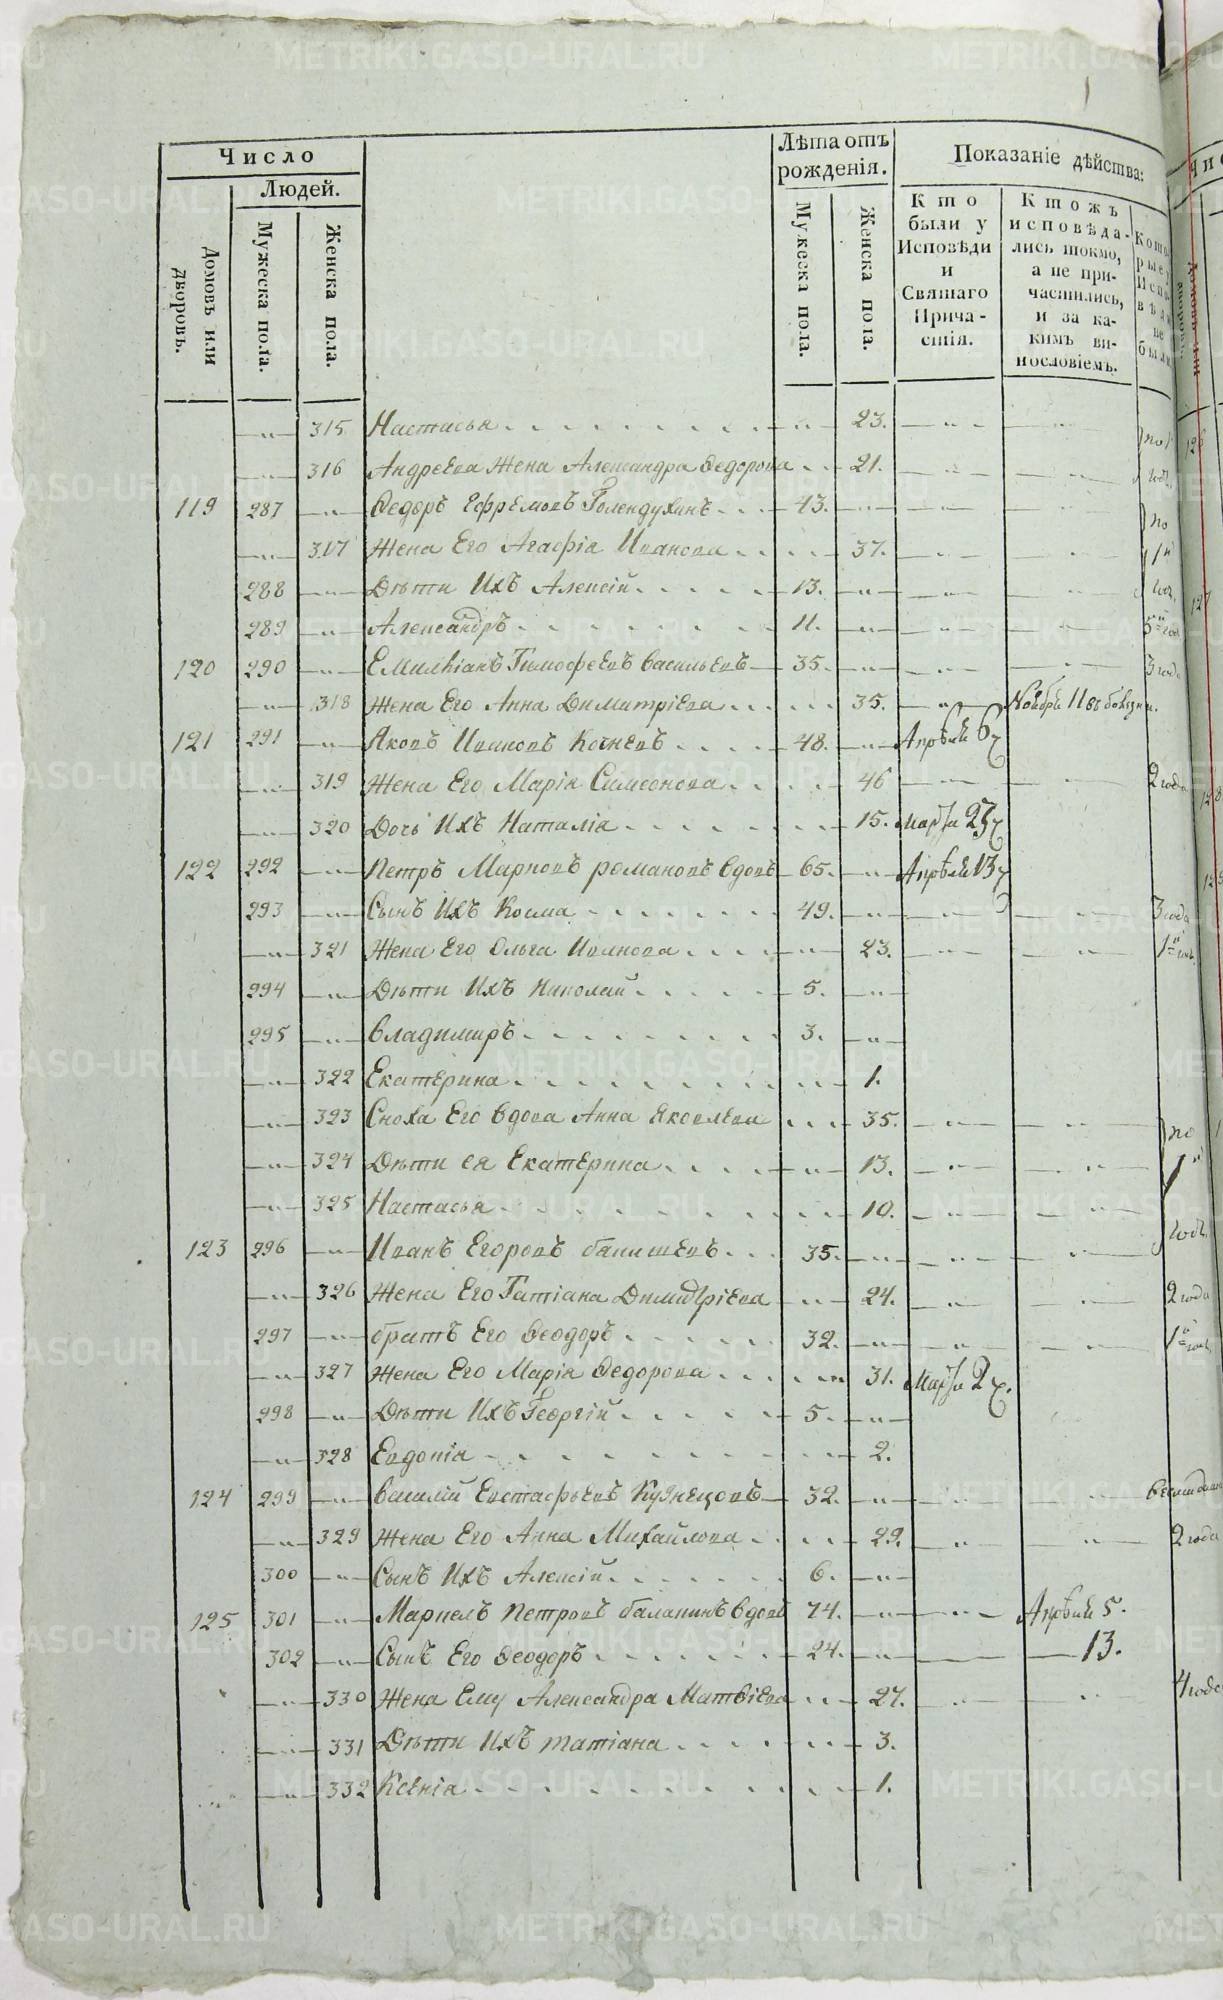 Число
Людей.
Домовъ или дворовъ.
Мужеска пола.
Женска пола.
Лѣта отъ рожденія.
Мужеска пола.
Женска пола.
Показаніе дѣйства:
Кто были у Исповѣди и Святаго Причастія.
Кто жъ исповѣдались токмо, а не причастились, и за какимъ винословіемъ.
315 Настасья 23.
316 Андреева Жена Александра Ѳедорова 21.
119 287 Ѳедоръ Ефремовъ Голендухинъ 43.
317 Жена Его Агафія Иванова 37.
288 Дѣти Ихъ Алексій 13.
289 Александръ 11.
120 290 Емиліанъ Тимофеевъ Васильевъ 35. 3 года
318 Жена Его Анна Димитріева 35. Ноября 11 въ болѣзни.
121 291 Яковъ Ивановъ Кочневъ 48. Апрѣля 6
319 Жена Его Марія Симеонова 46 2 года
320 Дочь Ихъ Наталія 15. Марта 23
122 292 Петръ Марковъ Романовъ вдовъ 65. Апрѣля 13
293 Сынъ Ихъ Косма 49. 3 года
321 Жена Его Ольга Иванова 23.
294 Дѣти Ихъ Николай 5.
295 Владимиръ 3.
322 Екатерина 1.
323 Сноха Его вдова Анна Яковлева 35. по
324 Дѣти ея Екатерина 13.
325 Настасья 10.
123 296 Иванъ Егоровъ Банишевъ 35.
326 Жена Его Татіана Димитріева 24. 2 года
297 Братъ Его Ѳеодоръ 32.
327 Жена Его Марія Ѳедорова 31. Марта 2
298 Дѣти Ихъ Георгій 5.
328 Евдокія 2.
124 299 Василій Евстафьевъ Кузнецовъ 32.
329 Жена Его Анна Михайлова 29. 2 года
300 Сынъ Ихъ Алексій 6.
125 301 Маркелъ Петровъ Балакинъ вдовъ 74. Апрѣля 5.
302 Сынъ Его Ѳеодоръ 24. 13.
330 Жена Ему Александра Матвіева 27.
331 Дѣти Ихъ Татіана 3.
332 Ксенія 1.
METRIKI.GASO-URAL.RU